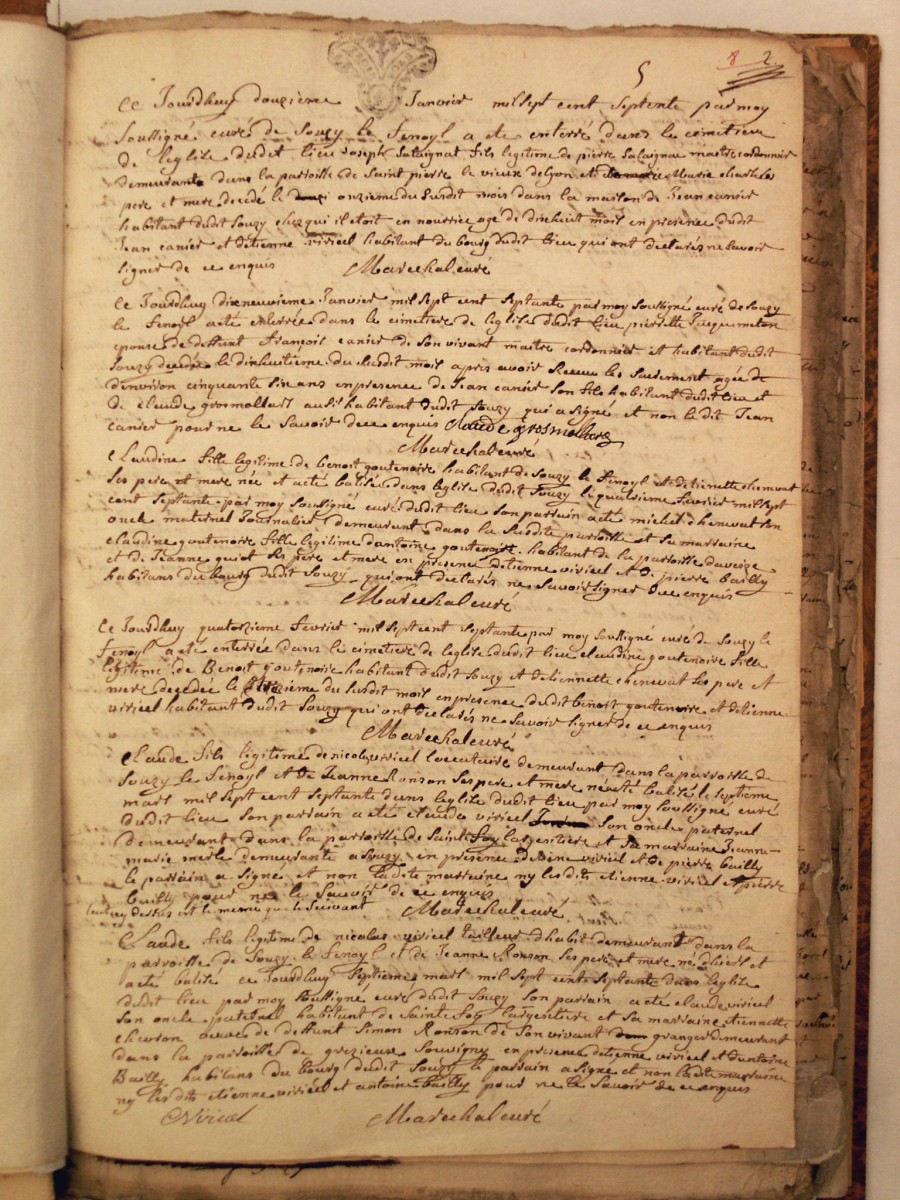 5
8 2
Ce Jourdhuy douzieme Janvier mil sept cent septente par moy
soussigné curé de Souzy le Fenoyl a eté enterré dans le cimetiere
de l'eglise dudit lieu Joseph salaignat fils legitime de pierre salaignac maitre cordonnier
demeurant dans la parroisse de Saint pierre le vieux de lyon et Marie
pere et mere decedé le onzieme du susdit mois dans la maison de Jean canier
habitant dudit Souzy chez qui il etoit en nourrice agé de dixhuit mois en presence dudit
Jean canier et d'etienne viricel habitant du bourg dudit lieu qui ont declarés ne savoir
signer de ce enquis Marechal curé
Ce Jourdhuy dixneuvieme Janvier mil sept cent septante par moy soussigné curé de Souzy
le Fenoyl a eté enterrée dans le cimetiere de leglise dudit lieu pierrette Jacquemeton
epouse de deffunt François canier de son vivant maitre cordonnier et habitant dudit
Souzy decedée le dixhuitieme du susdit mois apres avoir Receu les sacrement agée de
d'environ cinquante six ans en presence de Jean canier son fils habitant dudit lieu et
de claude grosmollard aussi habitant dudit Souzy qui a signé et non le dit Jean
canier pour ne le savoir de ce enquis Claude grosmollard
Marechal curé
Claudine fille legitime de benoit goutenoire habitant de Souzy le Fenoyl et d'etiennette chenevat
ses pere et mere née et a eté batisé dans leglise dudit Souzy le quatrieme fevrier mil sept
cent septante par moy soussigné curé dudit lieu son parrain a eté michel chenevat son
oncle maternel Journalier demeurant dans la susdite parroisse et sa marraine
claudine goutenoire fille legitime d'antoine goutenoire habitant de la parroisse daveize
et de Jeanne guiot ses pere et mere en presence d'etienne viricel et de pierre bailly
habitans du bourg dudit Souzy qui ont declarés ne savoir signer de ce enquis
Marechal curé
Ce Jourdhuy quatorzieme fevrier mil sept cent septante par moy soussigné curé de Souzy le
Fenoyl a eté enterrée dans le cimetiere de leglise dudit lieu claudine goutenoire fille
legitime de Benoit goutenoire habitant dudit Souzy et d'etiennette chenevat ses pere et
mere decedée le du susdit mois en presence dudit benoit goutenoire et d'etienne
viricel habitant dudit Souzy qui ont declarés ne savoir signer de ce enquis
Marechal curé
Claude fils legitime de nicolas viricel locataire demeurant dans la parroisse de
Souzy le Fenoyl et de Jeanne Ronson ses pere et mere né et eté batisé le septieme
mars mil sept cent septante dans leglise dudit lieu par moy soussigné curé
dudit lieu son parrain a eté claude viricel son oncle paternel
demeurant dans la parroisse de Sainte foy largentiere et sa marraine Jeanne
marie merle demeurante a Souzy en presence d'etienne viricel et de pierre bailly
le parrain a signé et non la dite marraine ny les dits etienne viricel et pierre
bailly pour ne le savoir de ce enquis
lacte cy dessus est le meme que le suivant Marechal curé
Claude fils legitime de nicolas viricel tailleur d'habit demeurant dans la
parroisse de Souzy le Fenoyl et de Jeanne Ronson ses pere et mere né d'hier et
a eté batisé ce Jourdhuy septieme mars mil sept cent septante dans leglise
dudit lieu par moy soussigné curé dudit Souzy son parrain a eté claude viricel
son oncle paternel habitant de Sainte foy largentiere et sa marraine etiennette
chevron veuve de deffunt Simon Ronson de son vivant granger demeurant
dans la parroisse de grezieux Souvigny en presence d'etienne viricel et d'antoine
Bailly habitans du bourg dudit Souzy le parrain a signé et non la dite marraine
ny les dits etienne viricel et antoine bailly pour ne le savoir de ce enquis
Viricel Marechal curé